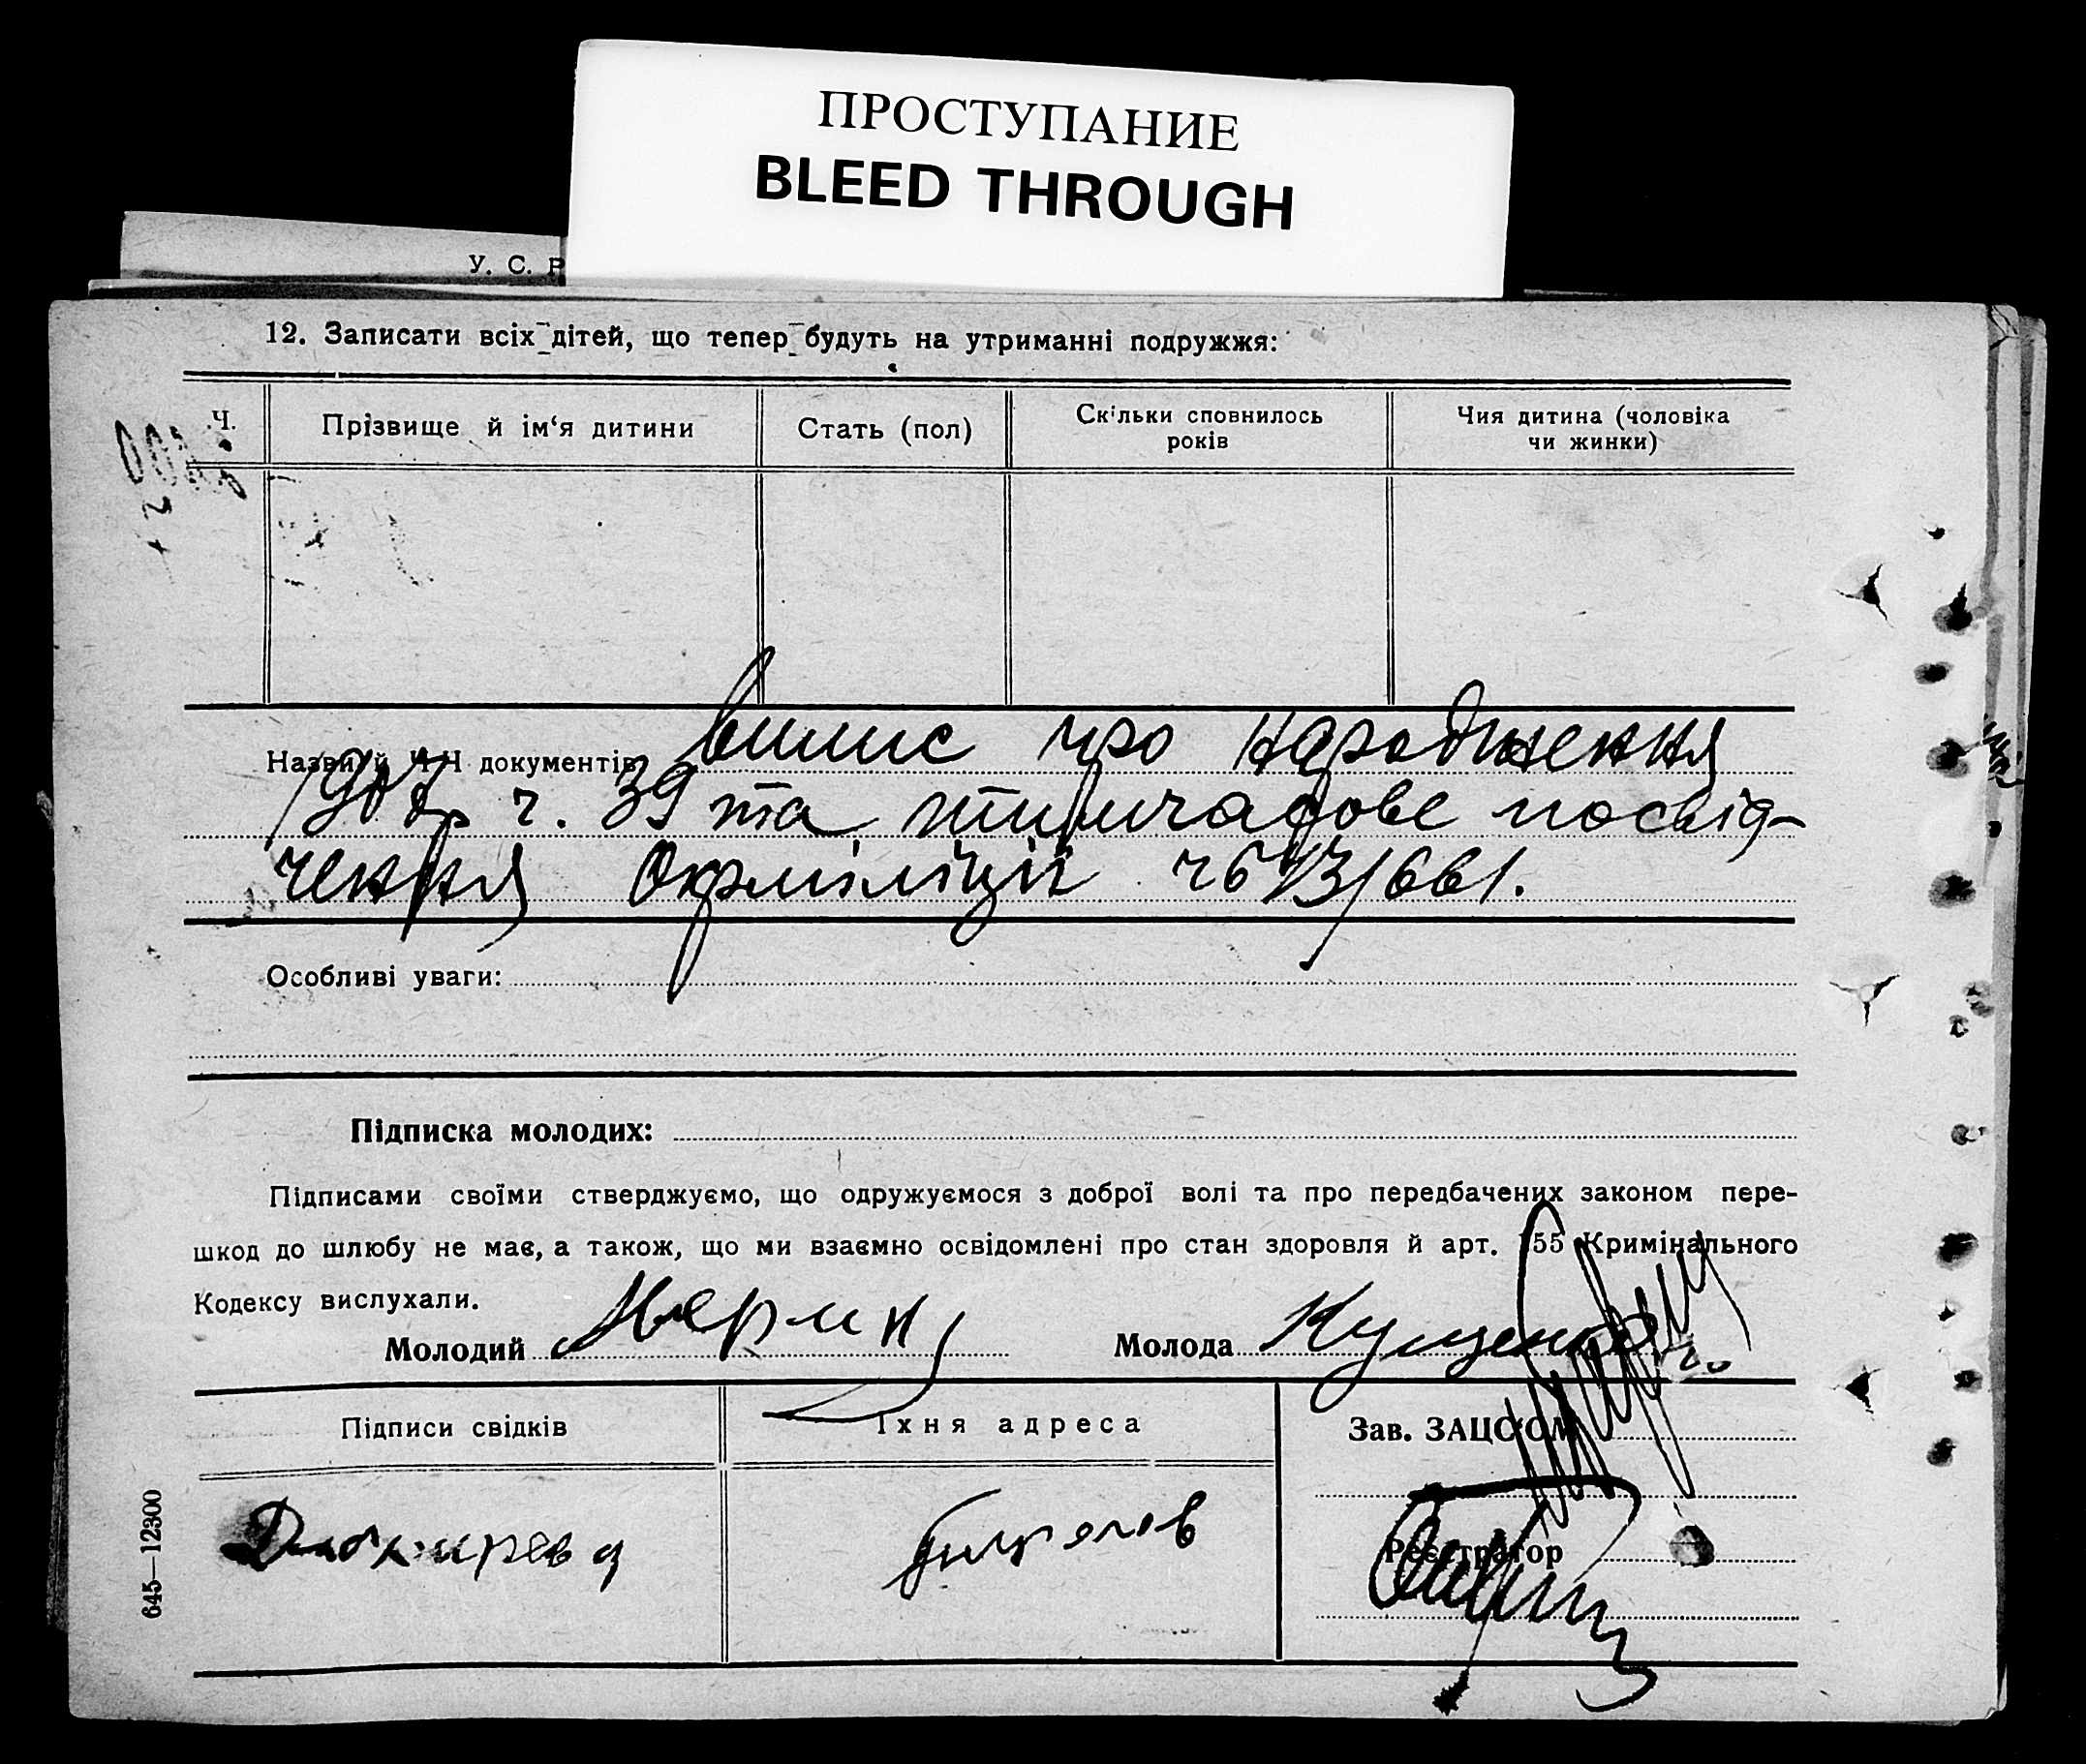 ПРОСТУПАНИЕ
BLEED THROUGH
У. С.
12. Записати всіх дітей, що тепер будуть на утриманні подружжя:
Ч.
Прізвище й ім‘я дитини
Стать (пол)
Скільки сповнилось років
Чия дитина (чоловіка чи жинки)
Назви й Ч Ч документів випис про народження
ч. 39 та тимчасове посвід-
чення Окрміліції
Особливі уваги:
Підписка молодих:
Підписами своїми стверджуємо, що одружуємося з доброї волі та про передбачених законом пере-
шкод до шлюбу не має, а також, що ми взаємно освідомлені про стан здоровля й арт. 155 Кримінального
Кодексу вислухали.
Молодий
Молода Кущенко
Підписи свідків
Їхня адреса
Зав. ЗАЦС‘ОМ
Реєстратор
645—12300